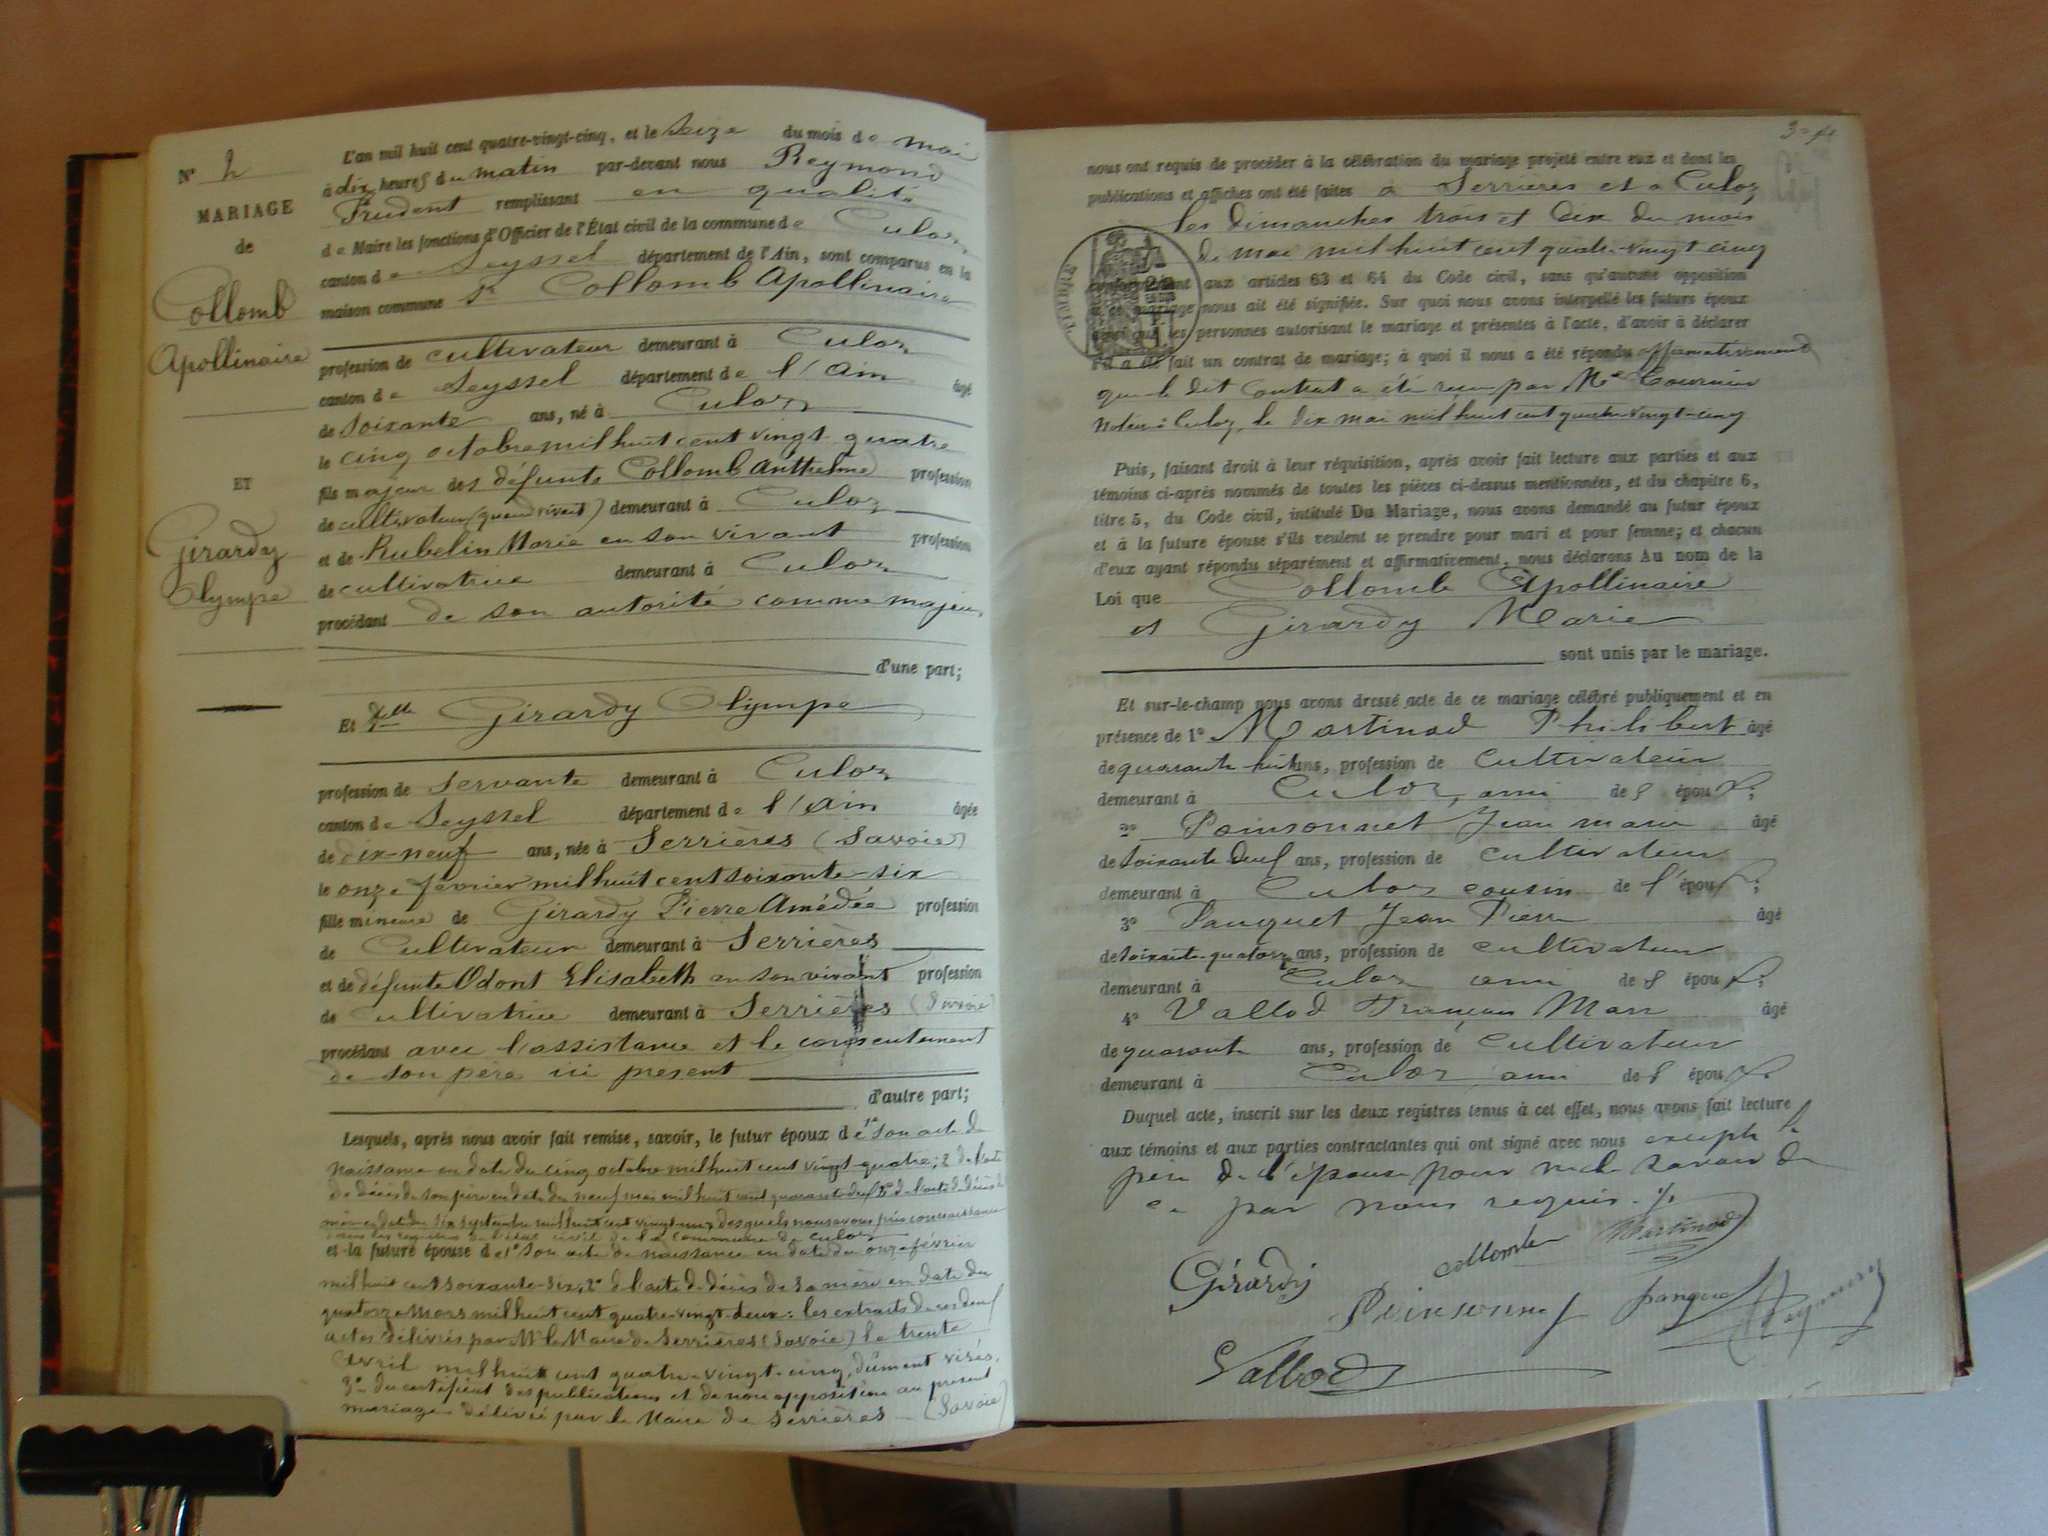 N° 2
MARIAGE
de
Collomb
Apollinaire
ET
Girardy
Olympe
L'an mil huit cent quatre-vingt-cinq, et le seize du mois de mai
à dix heures du matin par-devant nous Reymond
Prudent remplissant en qualité
de Maire les fonctions d'Officier de l'État civil de la commune de Culoz
canton de Seyssel département de l'Ain, sont comparus en la
maison commune Sr Collomb Apollinaire
profession de cultivateur demeurant à Culoz
canton de Seyssel département de l'Ain âgé
de soixante ans, né à Culoz
le cinq octobre mil huit cent vingt-quatre
fils majeur des défunts Collomb Anthelme profession
de cultivateur (quand vivait) demeurant à Culoz
et de Rubelin Marie en son vivant profession
de cultivatrice demeurant à Culoz
procédant de son autorité comme majeur,
d'une part;
Et Delle Girardy Olympe
profession de Servante demeurant à Culoz
canton de Seyssel département de l'Ain âgée
de dix-neuf ans, née à Serrières (Savoie)
le onze février mil huit cent soixante-six
fille mineure de Girardy Pierre Amédée profession
de Cultivateur demeurant à Serrières
et de défunte Odont Elisabeth en son vivant profession
de Cultivatrice demeurant à Serrières (Savoie)
procédant avec l'assistance et le consentement
de son père ici présent
d'autre part;
Lesquels, après nous avoir fait remise, savoir, le futur époux de 1° son acte de
naissance en date du cinq octobre mil huit cent vingt-quatre; 2° de l'acte
de décès de son père en date du neuf mai mil huit cent quarante-deux 3° de l'acte de décès de sa
mère en date du six septembre mil huit cent vingt-neuf desquels nous avons pris connaissance
dans les registres de l'état civil de la commune de Culoz
et la future épouse de 1° son acte de naissance en date du onze février
mil huit cent soixante-six; 2° de l'acte de décès de sa mère en date du
quatorze mars mil huit cent quatre-vingt-deux: les extraits de ces deux
actes délivrés par Mr le Maire de Serrières (Savoie) le trente
avril mil huit cent quatre-vingt-cinq, dûment visés,
3° du certificat des publications et de non opposition au présent
mariage délivré par le Maire de Serrières (Savoie)
nous ont requis de procéder à la célébration du mariage projeté entre eux et dont les
publications et affiches ont été faites à Serrières et à Culoz
les dimanches trois et dix du mois
de mai mil huit cent quatre-vingt-cinq
conformément aux articles 63 et 64 du Code civil, sans qu'aucune opposition
à ce mariage nous ait été signifiée. Sur quoi nous avons interpellé les futurs époux
ainsi que les personnes autorisant le mariage et présentes à l'acte, d'avoir à déclarer
s'il a été fait un contrat de mariage; à quoi il nous a été répondu affirmativement
que le dit contrat a été reçu par Me
Notaire à Culoz, le dix mai mil huit cent quatre-vingt-cinq
Puis, faisant droit à leur réquisition, après avoir fait lecture aux parties et aux
témoins ci-après nommés de toutes les pièces ci-dessus mentionnées, et du chapitre 6,
titre 5, du Code civil, intitulé Du Mariage, nous avons demandé au futur époux
et à la future épouse s'ils veulent se prendre pour mari et pour femme; et chacun
d'eux ayant répondu séparément et affirmativement, nous déclarons Au nom de la
Loi que Collomb Apollinaire
et Girardy Marie
sont unis par le mariage.
Et sur-le-champ nous avons dressé acte de ce mariage célébré publiquement et en
présence de 1° Martinod Philibert âgé
de quarante-huit ans, profession de Cultivateur
demeurant à Culoz, ami de l' époux;
2° Poinsonnet Jean marie âgé
de soixante deux ans, profession de cultivateur
demeurant à Culoz cousin de l'époux;
3° Pauquet Jean Pierre âgé
de soixante-quatorze ans, profession de cultivateur
demeurant à Culoz ami de l' époux;
4° Vallod François Marie âgé
de quarante ans, profession de Cultivateur
demeurant à Culoz ami de l' époux.
Duquel acte, inscrit sur les deux registres tenus à cet effet, nous avons fait lecture
aux témoins et aux parties contractantes qui ont signé avec nous excepté le
père de l'épouse pour ne le savoir de
ce par nous requis.
Girardy Collomb Martinod
Poinsonnet pauquet Reymond
Vallod